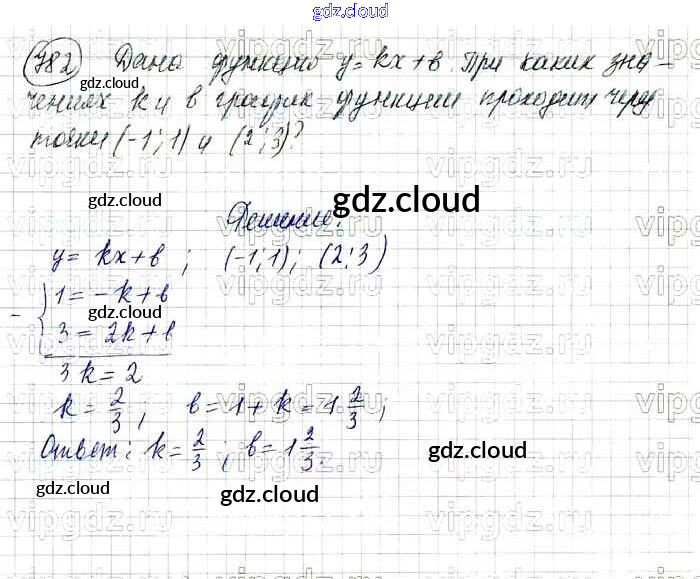 gdz.cloud
782 Дана функция y = kx + в. При каких зна-
чениях k и в график функции проходит через
точки (-1; 1) и (2; 3)?
Решение:
y = kx + в ; (-1; 1); (2; 3)
1 = -k + в
3 = 2k + в
3k = 2
k = 2/3 ; в = 1 + k = 1 2/3 ;
Ответ: k = 2/3 ; в = 1 2/3.
gdz.cloud
gdz.cloud
gdz.cloud
gdz.cloud
gdz.cloud
gdz.cloud
gdz.cloud
gdz.cloud
gdz.cloud
vipgdz.ru